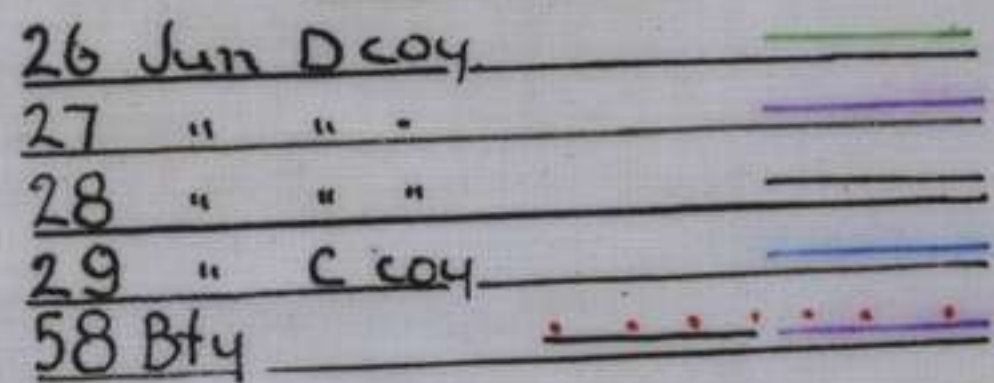 26 Jun D coy
27 " " "
28 " " "
29 " C coy
58 Bty